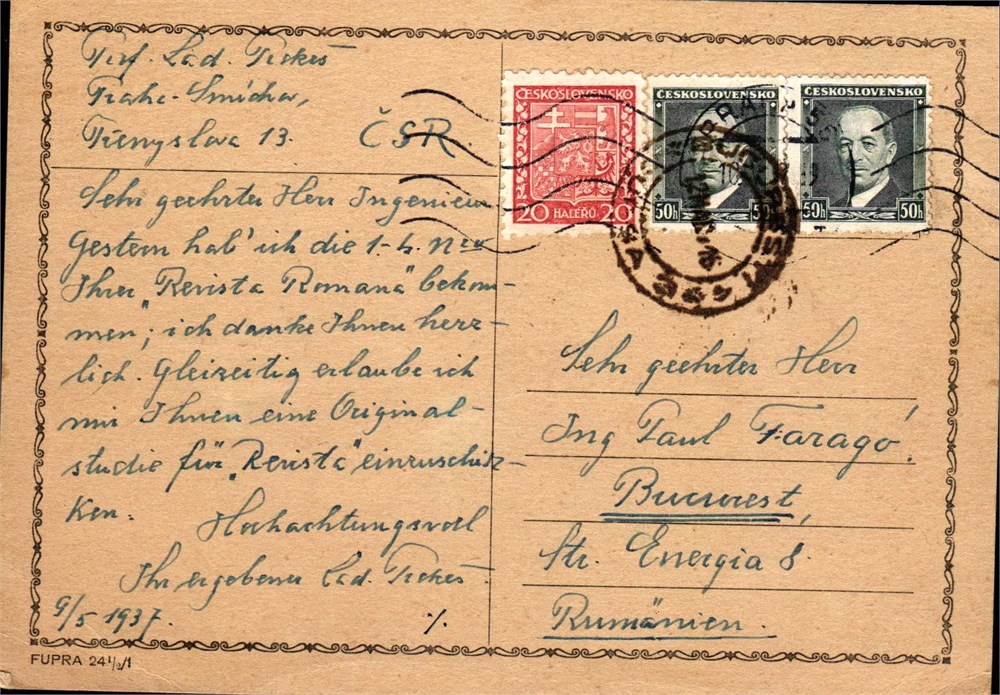 Prof. Lad. Prokeš
Praha - Smíchov,
Přemyslova 13. ČSR
Sehr geehrter Herr Ingenieur
Gestern hab' ich die 1-h. Nro
Ihrer "Revista Romană" bekom-
men"; ich danke Ihnen herz-
lich. Gleizeitig erlaube ich
mir Ihnen eine Original-
studie für "Revista" einzuschik-
ken.
Hochachtungsvoll
Ihr ergebener Lad. Prokeš
9/5 1937. ./.
FUPRA 24 1/3/1
ČESKOSLOVENSKO
20 HALÉŘŮ 20
ČESKOSLOVENSKO
50h 50h
ČESKOSLOVENSKO
50h 50h
PRAHA
BUCUREȘTI
Sehr geehrter Herr
Ing Paul Faragó!
Bucurest,
Str. Energia 8.
Rumänien.